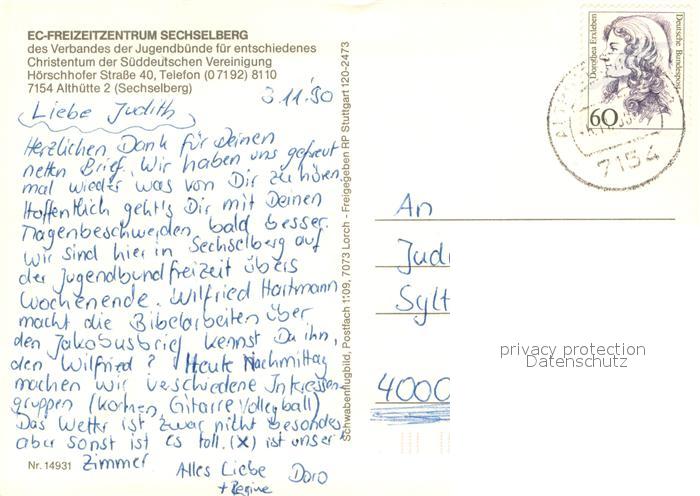 EC-FREIZEITZENTRUM SECHSELBERG
des Verbandes der Jugendbünde für entschiedenes
Christentum der Süddeutschen Vereinigung
Hörschhofer Straße 40, Telefon (0 71 92) 81 10
7154 Althütte 2 (Sechselberg)
3.11.90
Liebe Judith
Herzlichen Dank für Deinen
netten Brief. Wir haben uns gefreut
mal wieder was von Dir zu hören.
Hoffentlich geht's Dir mit Deinen
Magenbeschwerden bald besser.
Wir sind hier in Sechselberg auf
der Jugendbundfreizeit übers
Wochenende. Wilfried Hartmann
macht die Bibelarbeiten über
den Jakobusbrief kennst Du ihn,
den Wilfried? Heute Nachmittag
machen wir verschiedene Interessen
gruppen (Gitarre Volleyball)
Das Wetter ist zwar nicht besonders
aber sonst ist es toll. (X) ist unser
Zimmer
Alles Liebe Doro
+ Regine
Nr. 14931
Schwabenflugbild, Postfach 1109, 7073 Lorch - Freigegeben RP Stuttgart 120-2473
Dorothea Erxleben
Deutsche Bundespost
60
7154
An
Judi
Sylt
4000
privacy protection
Datenschutz